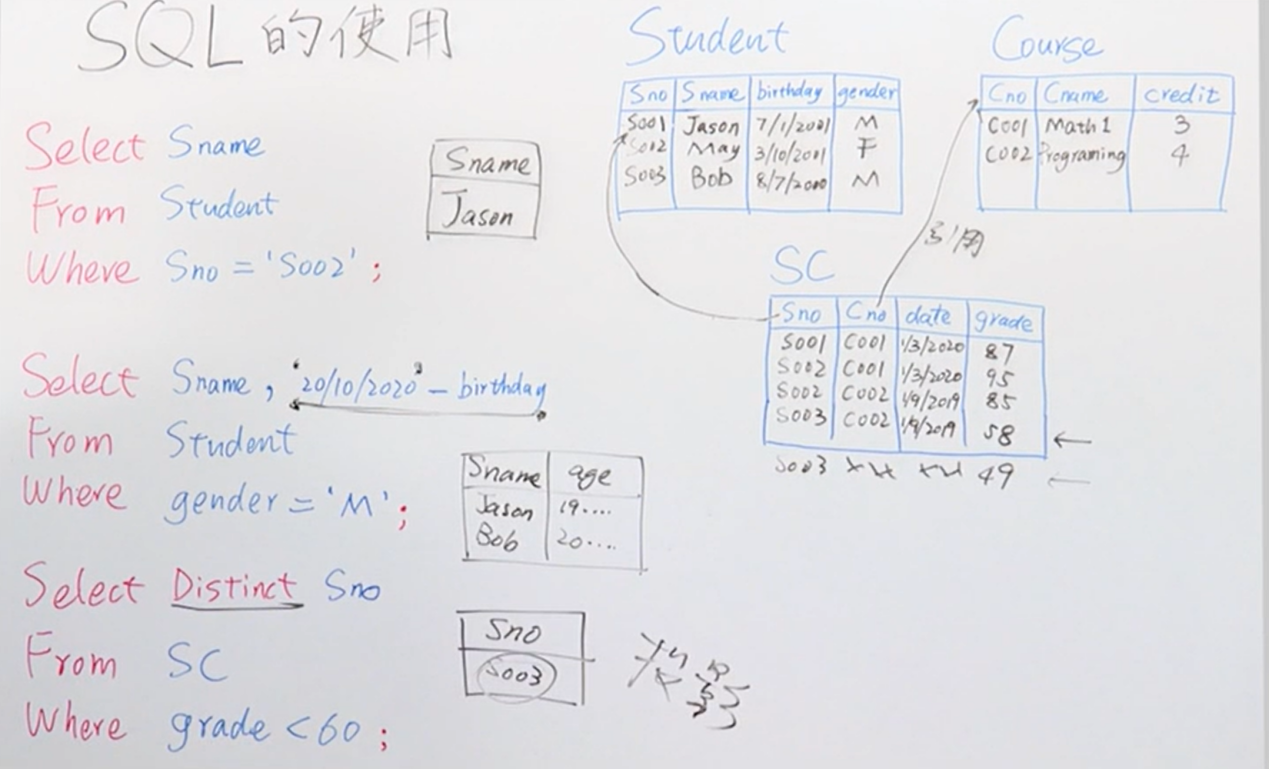 SQL 的使用
Select Sname
From Student
Where Sno = 'S002' ;
Sname
Jason
Select Sname , '20/10/2020' - birthday
From Student
Where gender = 'M' ;
Sname age
Jason 19....
Bob 20....
Select Distinct Sno
From SC
Where grade < 60 ;
Sno
S003
Student
Sno Sname birthday gender
S001 Jason 7/1/2001 M
S002 May 3/10/2001 F
S003 Bob 8/7/2000 M
Course
Cno Cname credit
C001 Math1 3
C002 Programing 4
引用
SC
Sno Cno date grade
S001 C001 1/3/2020 87
S002 C001 1/3/2020 95
S002 C002 1/9/2019 85
S003 C002 1/9/2019 58
S003 49